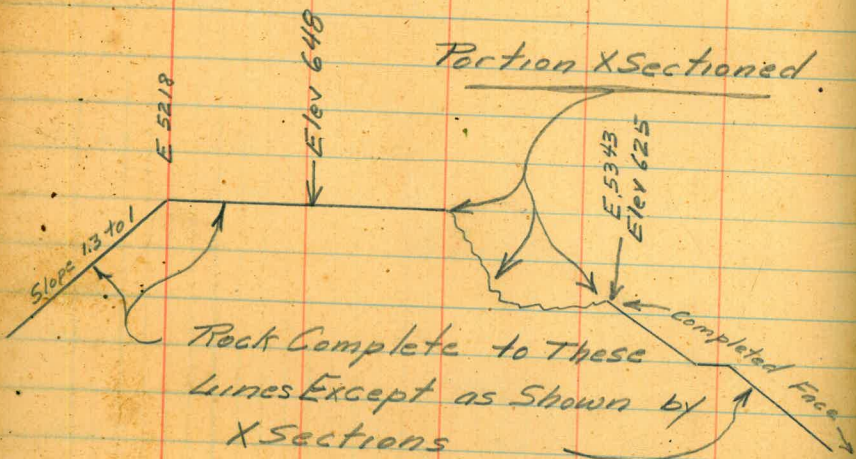 Portion XSectioned
E 5218
Elev 648
E.5343
Elev 625
Slope 1.3 to 1
Completed Face
Rock Complete to These
Lines Except as Shown by
XSections